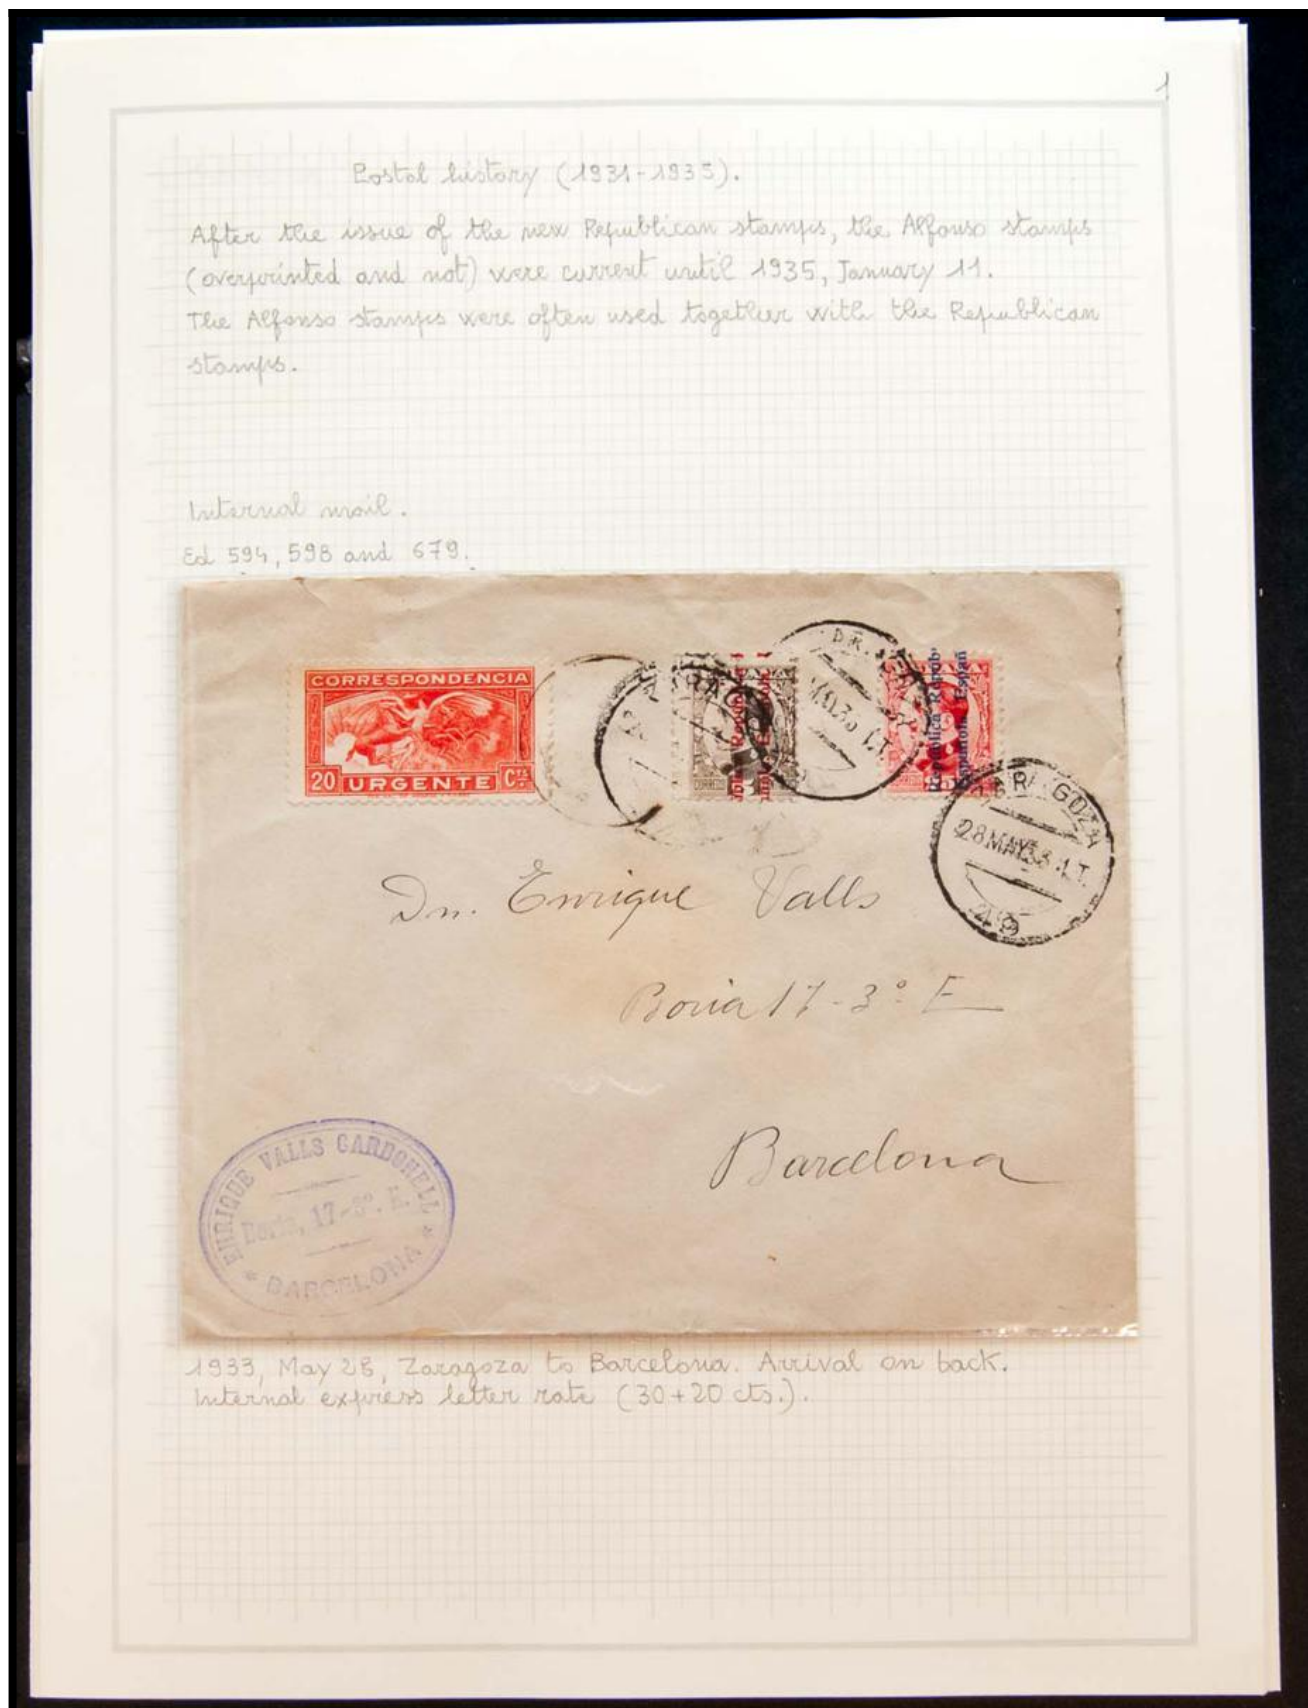 1
Postal history (1931-1935).
After the issue of the new Republican stamps, the Alfonso stamps
(overprinted and not) were current until 1935, January 11.
The Alfonso stamps were often used together with the Republican
stamps.
Internal mail.
Ed 594, 598 and 679.
CORRESPONDENCIA
20 URGENTE CTS
CORREOS
República
Española
ZARAGOZA
28 MAY 33 1.T.
49
Dn. Enrique Valls
Boria 17-3º E
Barcelona
ENRIQUE VALLS CARDONELL
Boria, 17-3º
* BARCELONA *
1933, May 28, Zaragoza to Barcelona. Arrival on back.
Internal express letter rate (30+20 cts.).